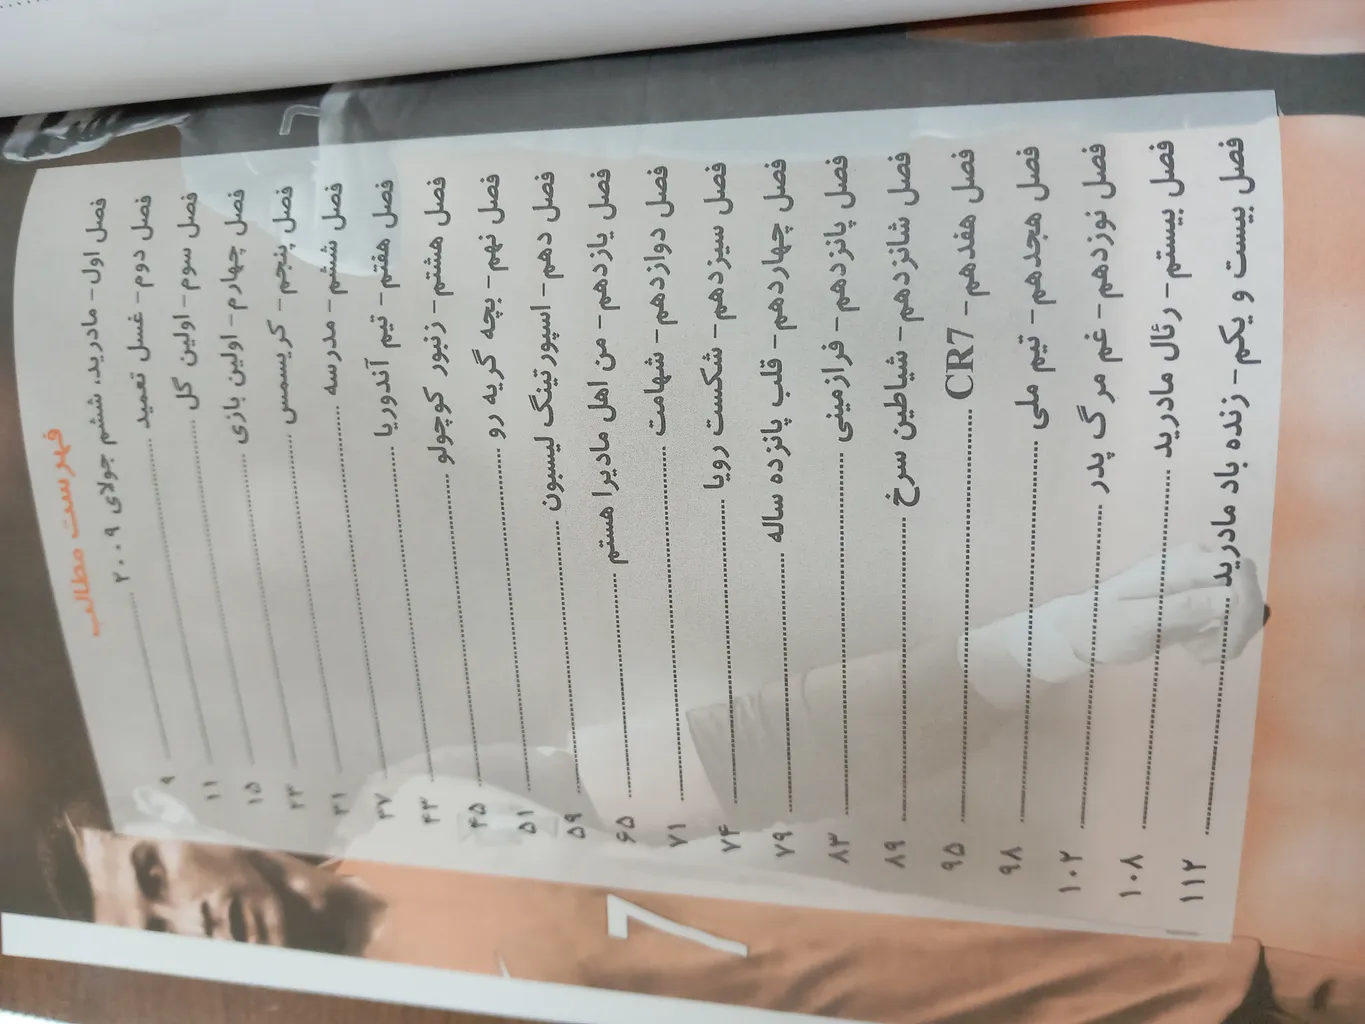 فهرست مطالب
فصل اول- مادرید، ششم جولای ۲۰۰۹ ........ ۹
فصل دوم- غسل تعمید ........ ۱۱
فصل سوم- اولین گل ........ ۱۵
فصل چهارم- اولین بازی ........ ۲۳
فصل پنجم- کریسمس ........ ۳۱
فصل ششم- مدرسه ........ ۳۷
فصل هفتم- تیم آندوریا ........ ۴۳
فصل هشتم- زنبور کوچولو ........ ۴۵
فصل نهم- بچه گریه رو ........ ۵۱
فصل دهم- اسپورتینگ لیسبون ........ ۵۹
فصل یازدهم- من اهل مادیرا هستم ........ ۶۵
فصل دوازدهم- شهامت ........ ۷۱
فصل سیزدهم- شکست رویا ........ ۷۴
فصل چهاردهم- قلب پانزده ساله ........ ۷۹
فصل پانزدهم- فرازمینی ........ ۸۳
فصل شانزدهم- شیاطین سرخ ........ ۸۹
فصل هفدهم- CR7 ........ ۹۵
فصل هجدهم- تیم ملی ........ ۹۸
فصل نوزدهم- غم مرگ پدر ........ ۱۰۲
فصل بیستم- رئال مادرید ........ ۱۰۸
فصل بیست و یکم- زنده باد مادرید ........ ۱۱۲
7
7